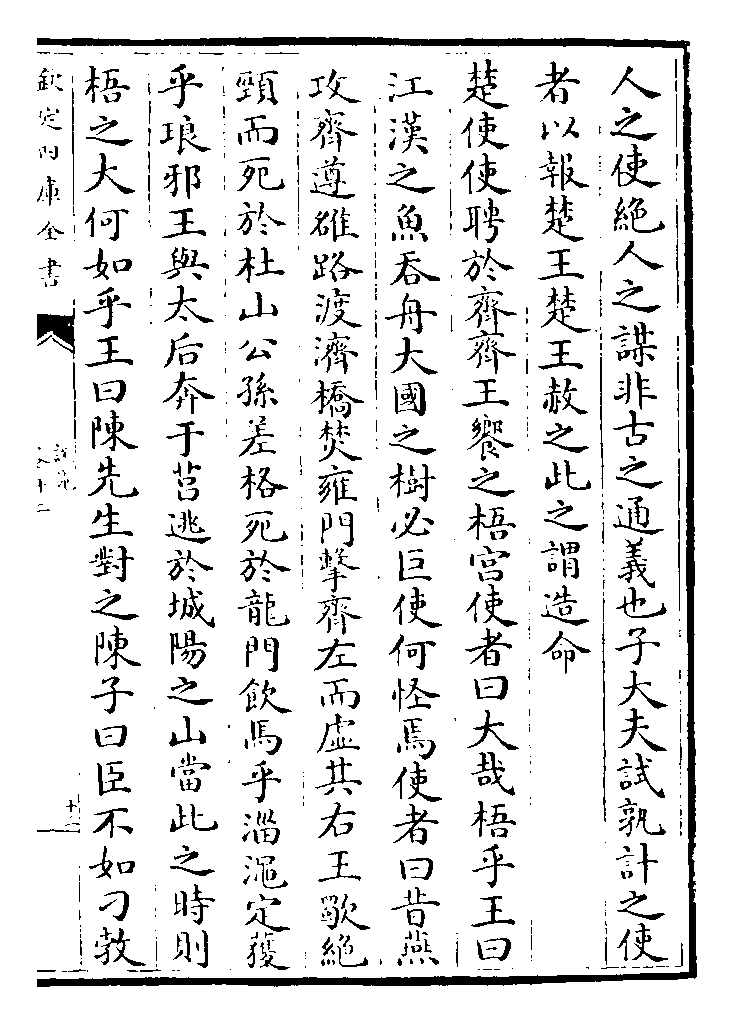 人之使絶人之謀非古之通義也子大夫試孰計之使
者以報楚王楚王赦之此之謂造命
楚使使聘於齊齊王饗之梧宫使者曰大哉梧乎王曰
江漢之魚吞舟大國之樹必巨使何怪焉使者曰昔燕
攻齊遵雒路渡濟橋焚雍門擊齊左而虚其右王歜絶
頸而死於杜山公孫差格死於龍門飲馬乎淄澠定獲
乎琅邪王與太后奔于莒逃於城陽之山當此之時則
梧之大何如乎王曰陳先生對之陳子曰臣不如刁敎
欽定四庫全書
說苑
卷十二
十二